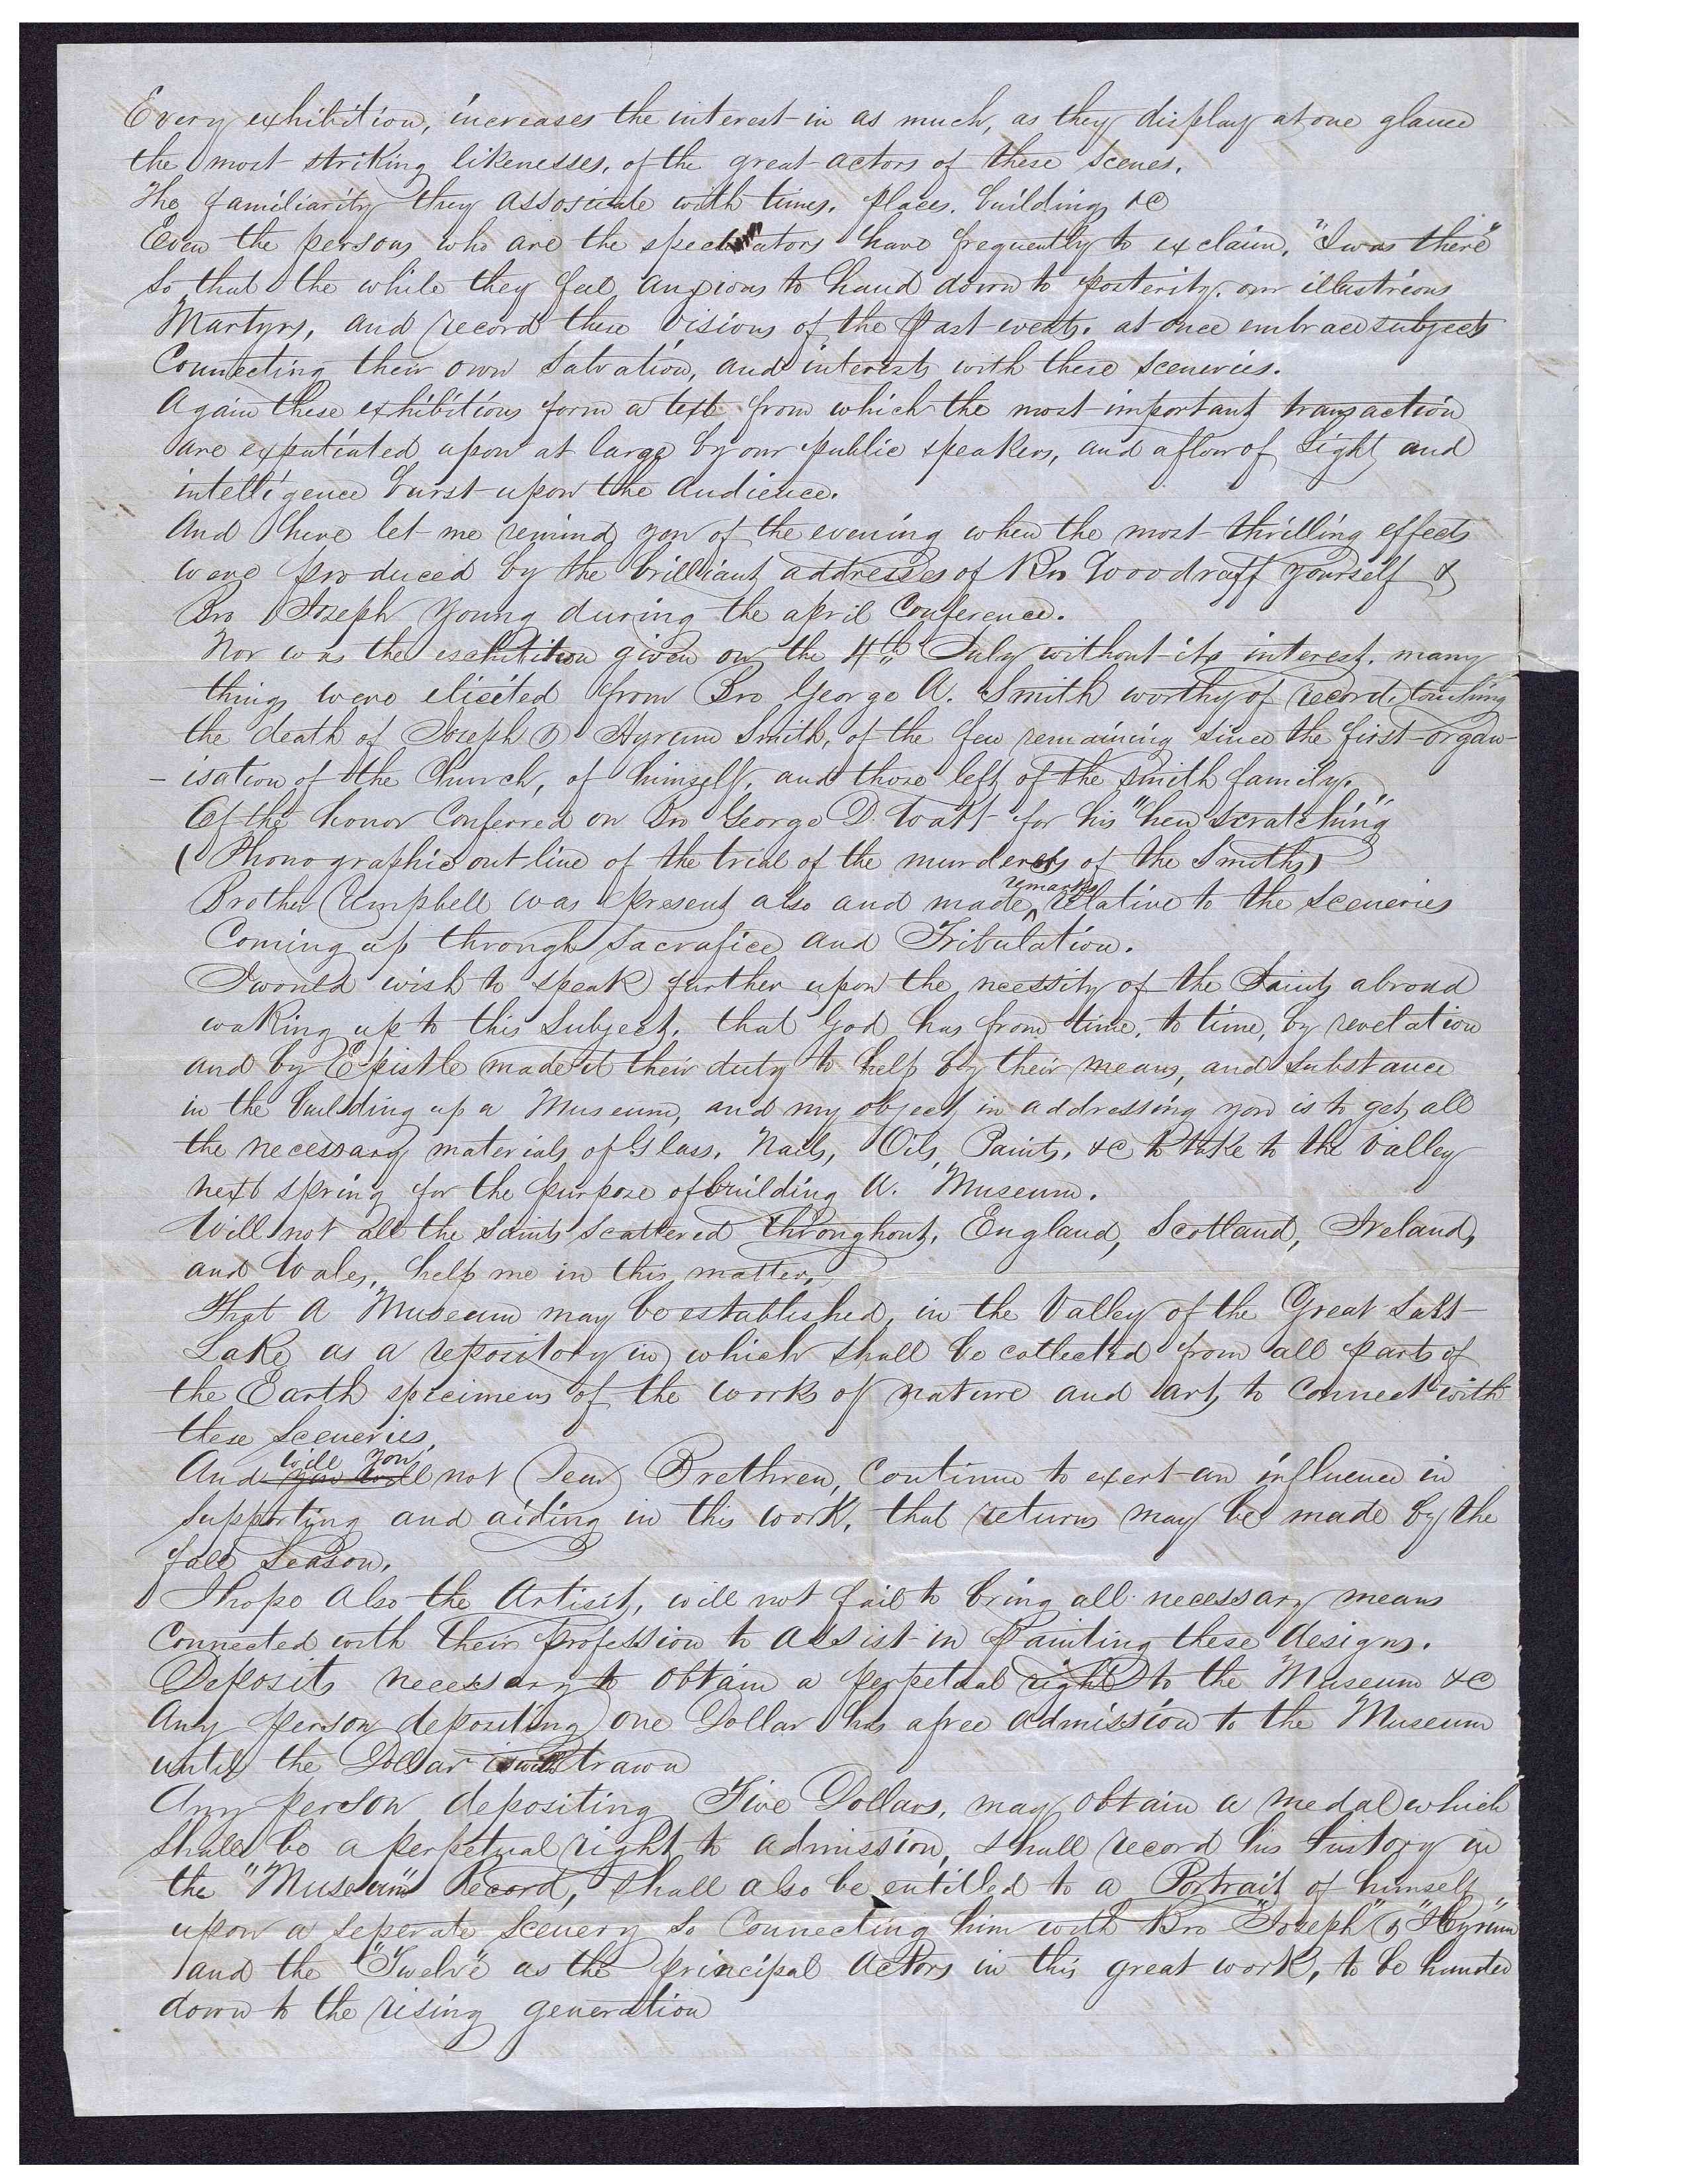 Every exhibition, increases the interest in as much, as they display at one glance
the most striking likenesses, of the great actors of these scenes.
The familiarity they assosiate with times, places, buildings &c
Even the persons who are the spectators have frequently to exclaim, "I was there"
So that the while they feel anxious to hand down to posterity, our illustrious
Martyrs, and record these visions of the past events, at once embrace subjects
Connecting their own Salvation, and interests with these sceneries.
Again these exhibitions form a text from which the most important transaction
are expatiated upon at large by our public speakers, and a flow of Light and
intelligence burst upon the Audience.
And here let me remind you of the evening when the most thrilling effects
were produced by the brilliant addresses of Bro Woodruff yourself &
Bro Joseph Young during the april Conference.
Nor was the exhibition given on the 4th July without its interest, many
things were elisited from Bro George A. Smith worthy of record, touching
the death of Joseph & Hyrum Smith, of the few remaining since the first organ-
-isation of the Church, of himself, and those left of the Smith family.
Of the honor Conferred on Bro George D. Watt for his "hen scratching"
(Phonographic out line of the trial of the murderers of the Smiths)
Brother Campbell was present also and made remarks relative to the sceneries
Coming up through Sacrafice and Tribulation.
I would wish to speak further upon the necessity of the Saints abroad
waking up to this Subject, that God has from time, to time, by revelation
and by Epistle made it their duty to help by their means, and substance
in the building up a Museum, and my object in addressing you is to get all
the necessary materials of Glass, Nails, Oils, Paints, &c to take to the valley
next spring for the purpose of building A. Museum.
Will not all the Saints scattered throughout, England, Scotland, Ireland,
and Wales, help me in this matter,
That A Museum may be established, in the Valley of the Great Salt
Lake as a repository in which shall be collected from all parts of
the Earth specimens of the works of nature and art, to Connect with
these Sceneries,
And will you not Dear Brethren, Continue to exert an influence in
supporting and aiding in this work, that returns may be made by the
fall Season.
I hope Also the Artist, will not fail to bring all necessary means
Connected with their profession to assist in Painting these designs.
Deposits necessary to obtain a perpetual right to the Museum &c
Any person depositing one Dollar has a free Admission to the Museum
until the Dollar is withdrawn
Any person depositing Five Dollars, may obtain a medal which
shall be a perpetual right to admission, shall record his history in
the "Museum" Record, shall also be entitled to a Portrait of himself
upon a seperate Scenery so Connecting him with Bro "Joseph" & "Hyrum"
and the "Twelve" as the principal Actors in this great work, to be handed
down to the rising generation